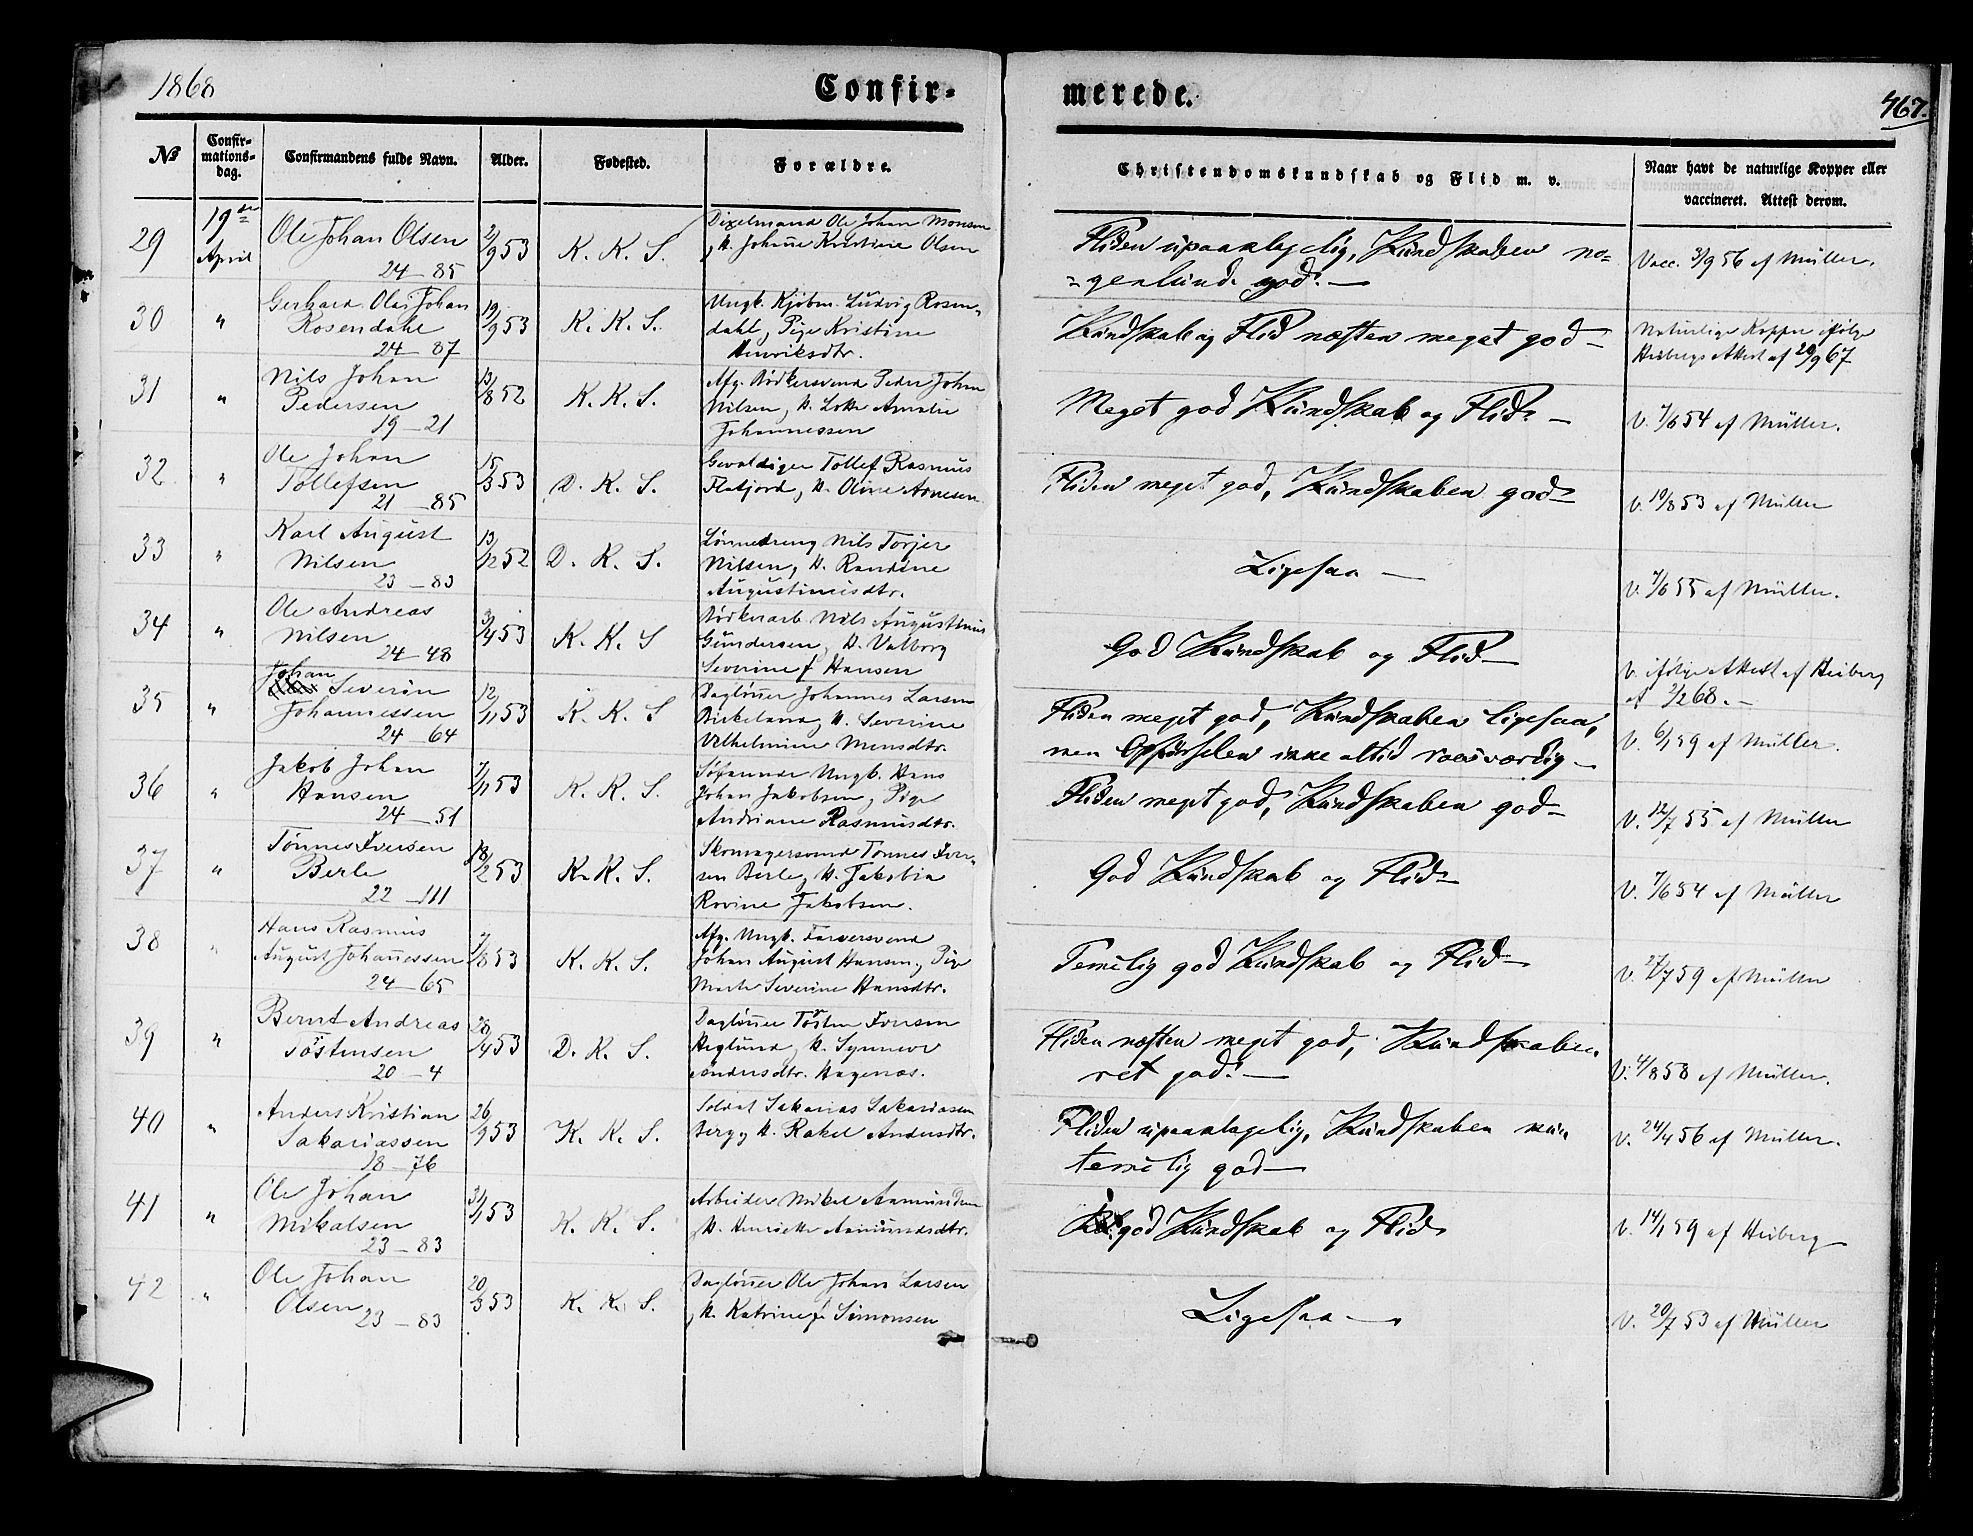 1868
Confir-
merede.
467.
№
Confir-
mations-
dag.
Confirmandens fulde Navn.
Alder.
Fødested.
Forældre.
Christendomskundskab og Flid m. v.
Naar havt de naturlige Kopper eller
vaccineret. Attest derom.
29
19de
April
Ole Johan Olsen
24-85
2/9 53
K. K. S.
Ole Johan Monsen
H. Johanne Kristine Olsen
Fliden upaaklagelig, Kundskaben no=
=genlunde god.
Vacc. 3/9 56 af Müller.
30
"
Gerhard Olai Johan
Rosendahl
24-87
19/9 53
K. K. S.
Ungk. Kjøbm. Ludvig Rosen-
dahl, Pige Kristine
Henriksdtr.
Kundskab og Flid næsten meget god
Naturlige Kopper ifølge
Heibergs Attest af 20/9 67
31
"
Nils Johan
Pedersen
19-21
13/8 52
K. K. S.
Afg. Bødkersvend Peder Johan
Nilsen, H. Lotte Amalie
Johannessen
Meget god Kundskab og Flid
V. 7/6 54 af Müller.
32
"
Ole Johan
Tollefsen
21-85
15/3 53
D. K. S.
Gevaldiger Tollef Rasmus
Flatjord, H. Oline Arnesen
Fliden meget god, Kundskaben god
V. 10/8 53 af Müller
33
"
Karl August
Nilsen
23-83
13/12 52
D. K. S.
Nils Torjer
Nilsen, H. Randine
Augustinusdtr.
Ligesaa
V. 7/6 55 af Müller.
34
"
Ole Andreas
Nilsen
24-48
3/4 53
K. K. S
Bødkerarb Nils Augustinus
Gundersen, H. Valborg
Severine f. Hansen
God Kundskab og Flid
V. ifølge Attest af Heiberg
af 2/2 68.
35
"
Johan
Severin
Johannessen
24-64
12/11 53
K. K. S
Dagløner Johannes Larsen
Birkeland, H. Severine
Vilhelmine Monsdtr.
Fliden meget god, Kundskaben ligesaa,
men Opførselen ikke altid rosværdig
V. 6/1 59 af Müller.
36
"
Jakob Johan
Hansen
24-51
7/11 53
K. K. S.
Søfarende Ungk. Hans
Johan Jakobsen, Pige
Andriane Rasmusdtr.
Fliden meget god, Kundskaben god
V. 12/7 55 af Müller
37
"
Tønnes Iversen
Berle
22-111
18/2 53
K. K. S.
Skomagersvend Tønnes Iver-
sen Berle, H. Jakobia
Rovine Jakobsen.
God Kundskab og Flid
V. 7/6 54 af Müller
38
"
Hans Rasmus
August Johannessen
24-65
7/8 53
K. K. S.
Afg. Ungk. Farversvend
Johan August Hansen, Pige
Marte Severine Hansdtr.
Temelig god Kundskab og Flid
V. 27/7 59 af Müller
39
"
Bernt Andreas
Tostensen
20-4
28/4 53
D. K. S.
Dagløner Tosten Iversen
Heglund, H. Synneve
Andersdtr. Hagenæs.
Fliden næsten meget god, Kundskaben
ret god.
V. 4/8 58 af Müller.
40
"
Anders Kristian
Sakariassen
18-76
26/9 53
K. K. S.
Soldat Sakarias Sakariassen
Berg, H. Rakel Andersdtr.
Fliden upaaklagelig, Kundskaben kun
temelig god
V. 24/4 56 af Müller.
41
"
Ole Johan
Mikalsen
23-83
3/1 53
K. K. S.
Arbeider Mikal Aamundsen
H. Henriette Aamundsdtr.
god Kundskab og Flid
V. 14/1 59 af Heiberg
42
"
Ole Johan
Olsen
23-83
20/3 53
K. K. S.
Dagløner Ole Johan Larsen
, H. Katrine f. Simonsen
Ligesaa
V. 20/7 53 af Müller